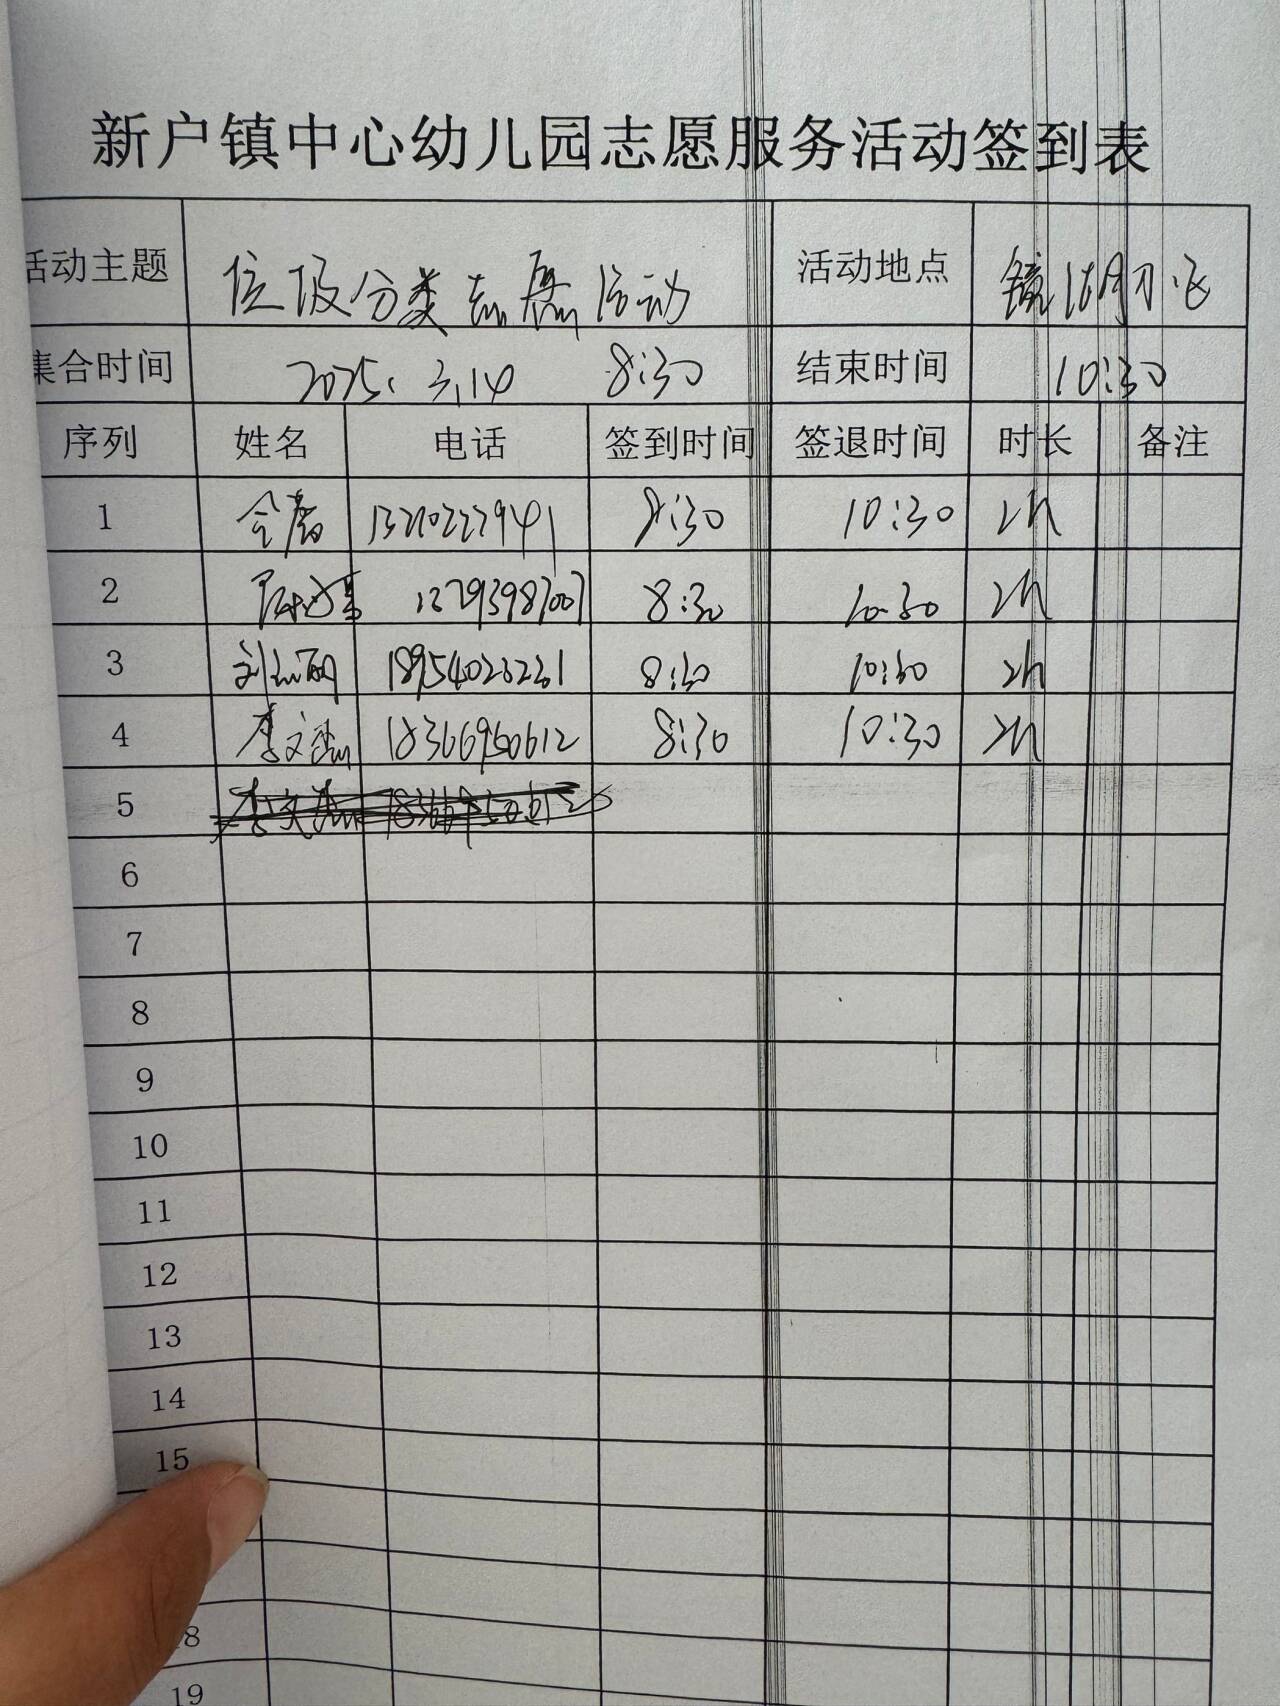 新户镇中心幼儿园志愿服务活动签到表
活动主题 垃圾分类志愿活动 活动地点 镜湖小区
集合时间 2025.3.14 8:30 结束时间 10:30
序列 姓名 电话 签到时间 签退时间 时长 备注
1 13210227941 8:30 10:30 2h
2 13793987007 8:30 10:30 2h
3 18954023231 8:30 10:30 2h
4 李文 18366950612 8:30 10:30 2h
5
6
7
8
9
10
11
12
13
14
15
18
19